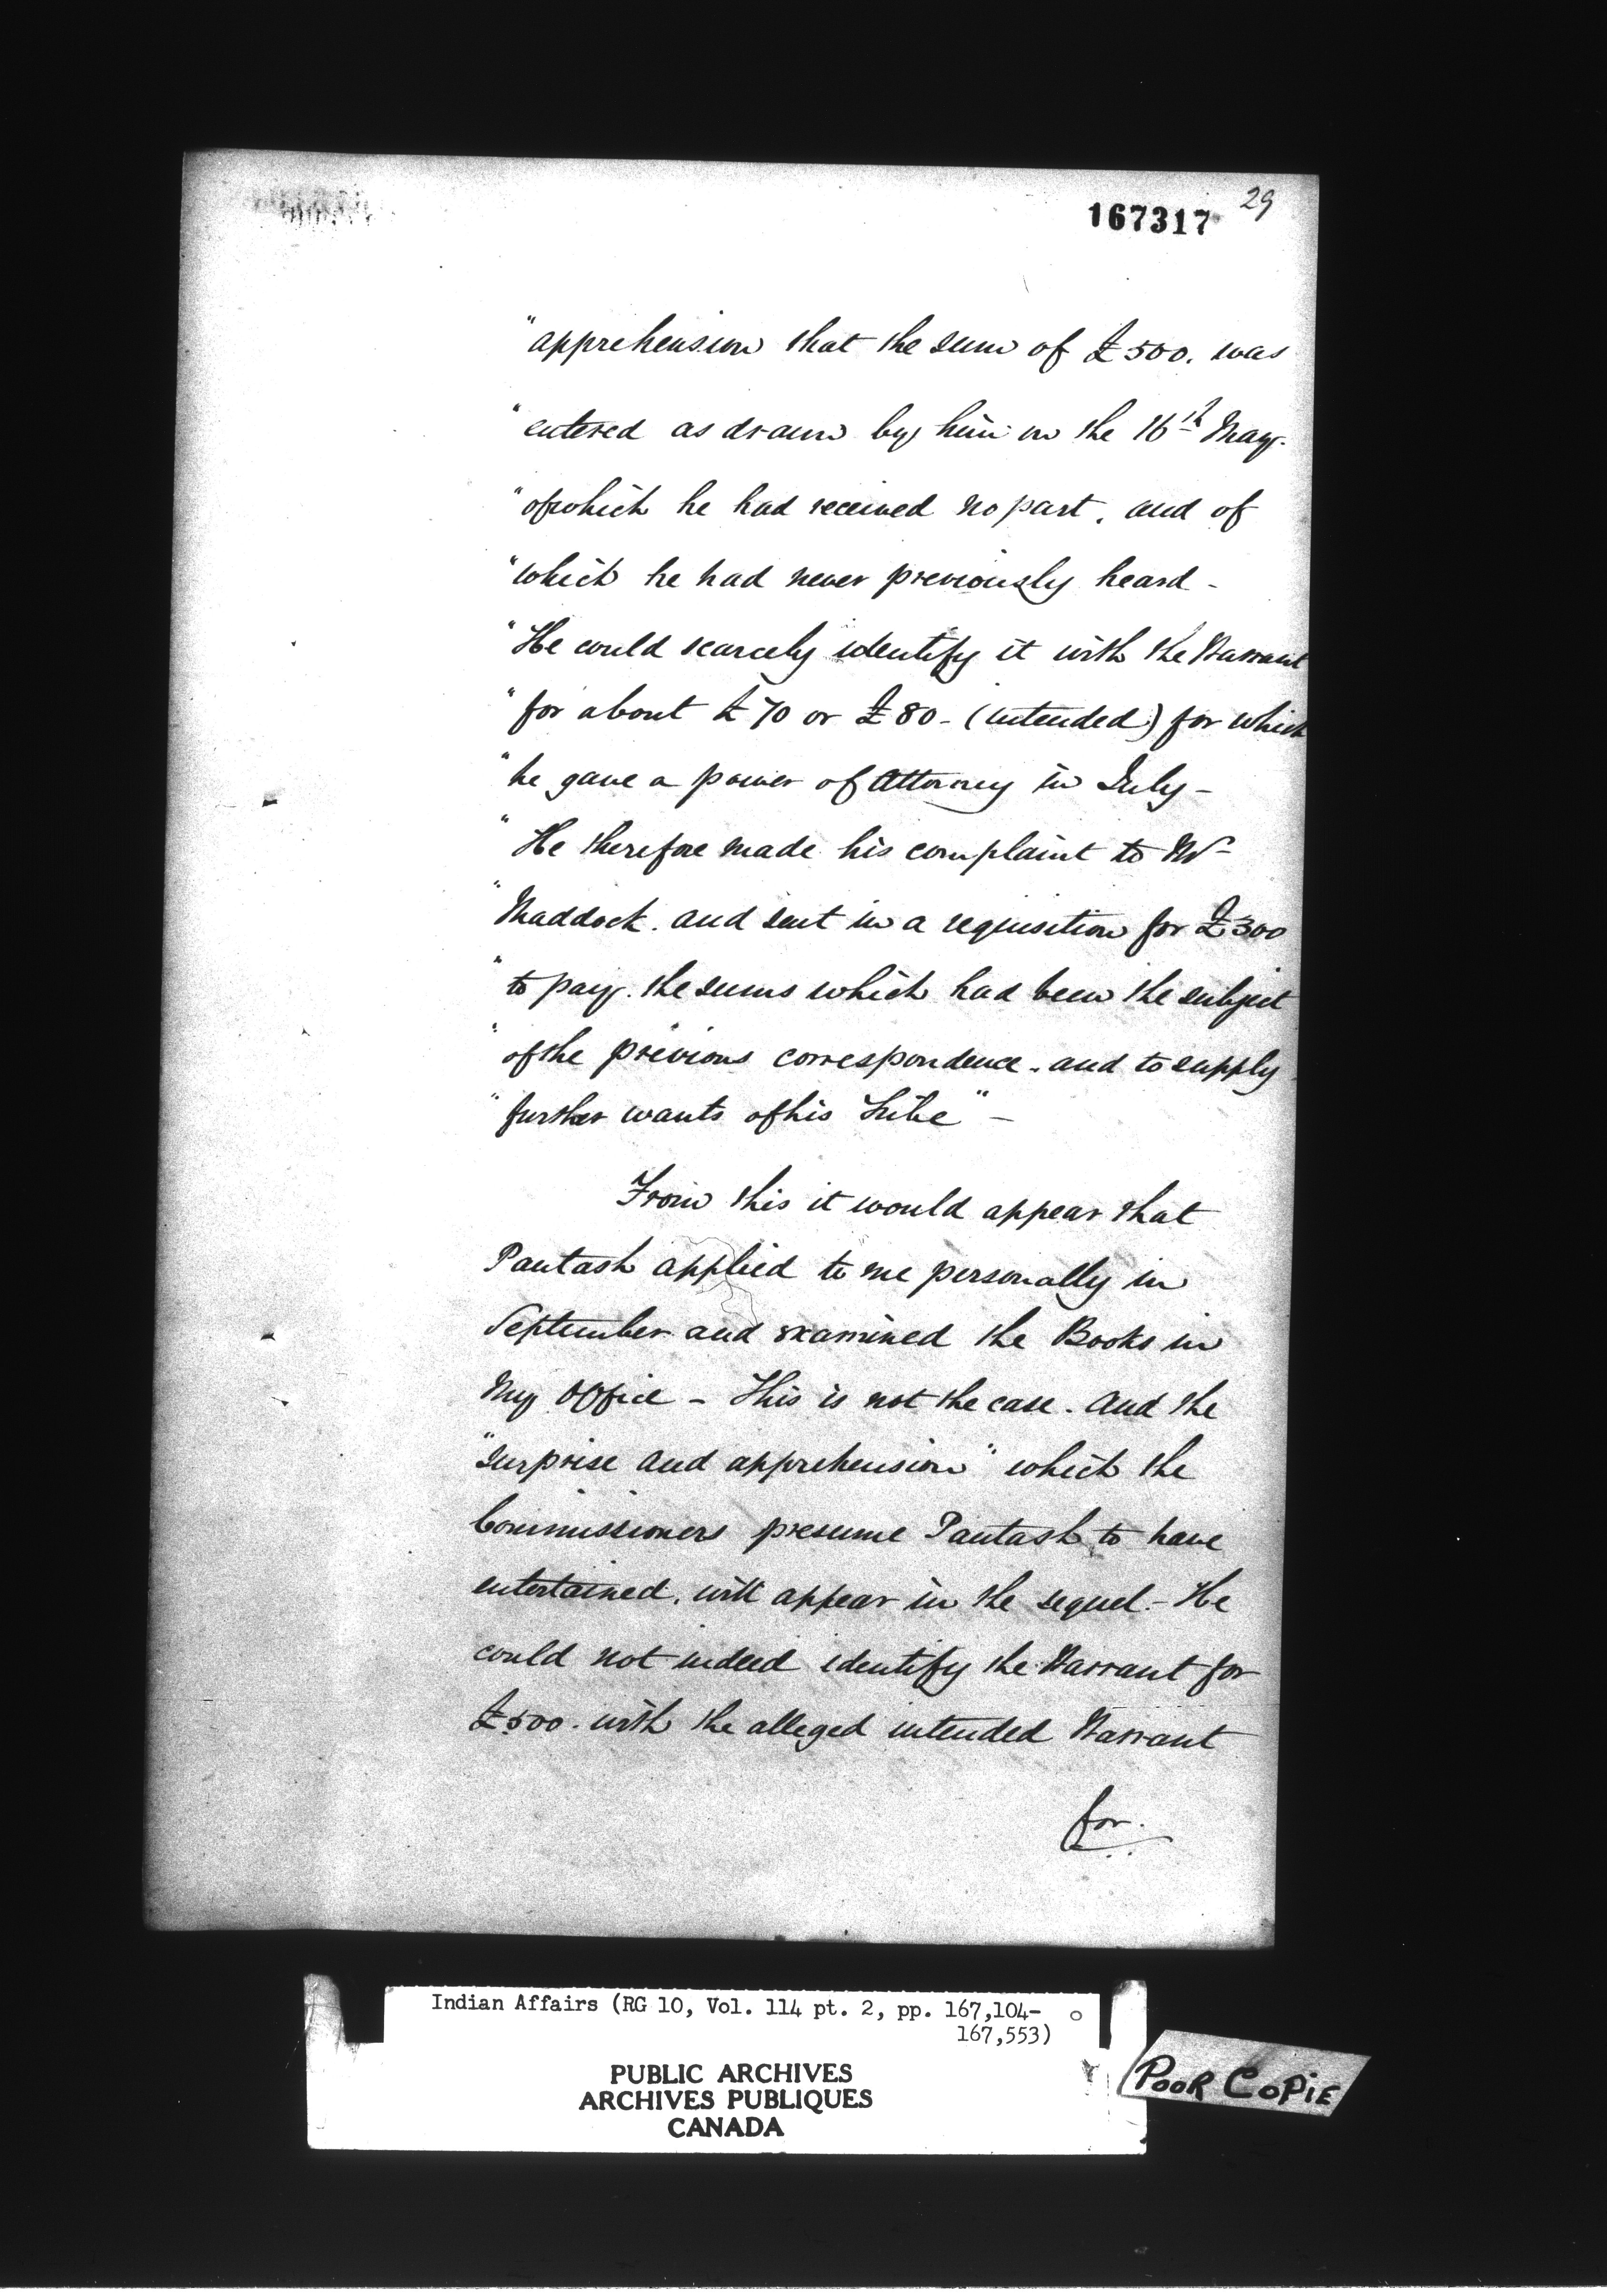 167317 29
"apprehension that the sum of £500. was
"entered as drawn by him on the 16th May.
"of which he had received no part. and of
"which he had never previously heard -
"He could scarcely identify it with the Warrant
"for about £70 or £80 - (intended) for which
"he gave a power of Attorney in July -
"He therefore made his complaint to Mr
"Maddock. and sent in a requisition for £300
"to pay. the sums which had been the subject
"of the previous correspondence. and to supply
"further wants of his Tribe" -
From this it would appear that
Pautash applied to me personally in
September and examined the Books in
My Office - This is not the case. And the
"surprise and apprehension" which the
Commissioners presume Pautash to have
entertained. will appear in the sequel. - He
could not indeed identify the Warrant for
£500. with the alleged intended Warrant
for.
Indian Affairs (RG 10, Vol. 114 pt. 2, pp. 167,104-
167,553)
PUBLIC ARCHIVES
ARCHIVES PUBLIQUES
CANADA
POOR COPIE